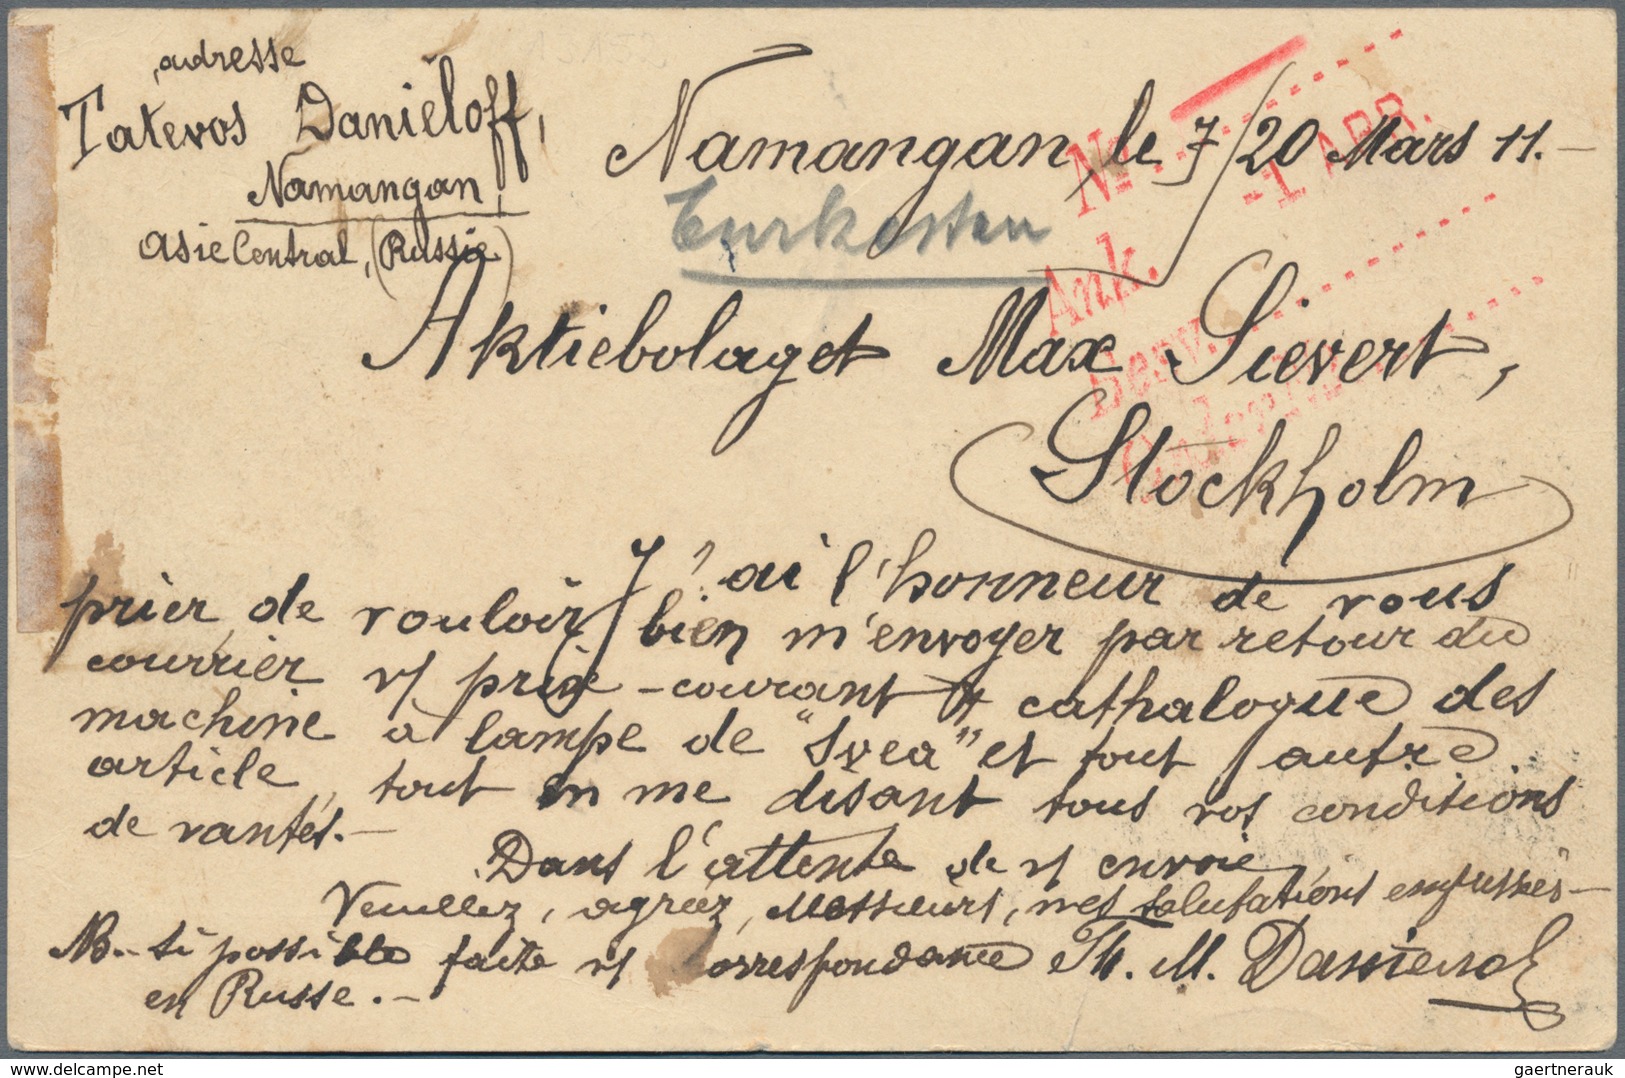 adresse
Tatevos Danieloff,
Namangan,
Asie Central, (Russie)
Namangan, le 7/20 Mars 11.-
Turkestan
No
-1 APR.
Ank.
Besv.
Aktiebolaget Max Sievert,
Stockholm
J'ai l'honneur de vous
prier de vouloir bien m'envoyer par retour du
courrier v/ prix-courant & cathalogue des
machine à lampe de "Svea" et tout autre
article, tout en me disant tous vos conditions
de vantes.-
Dans l'attente de v/ envoie
Veuillez, agréez, Messieurs, mes salutations empressés-
NB.- Si possible faite v/ correspondance
en Russe.-
Th. M. Danieloff
delcampe.net
gaertnerauk